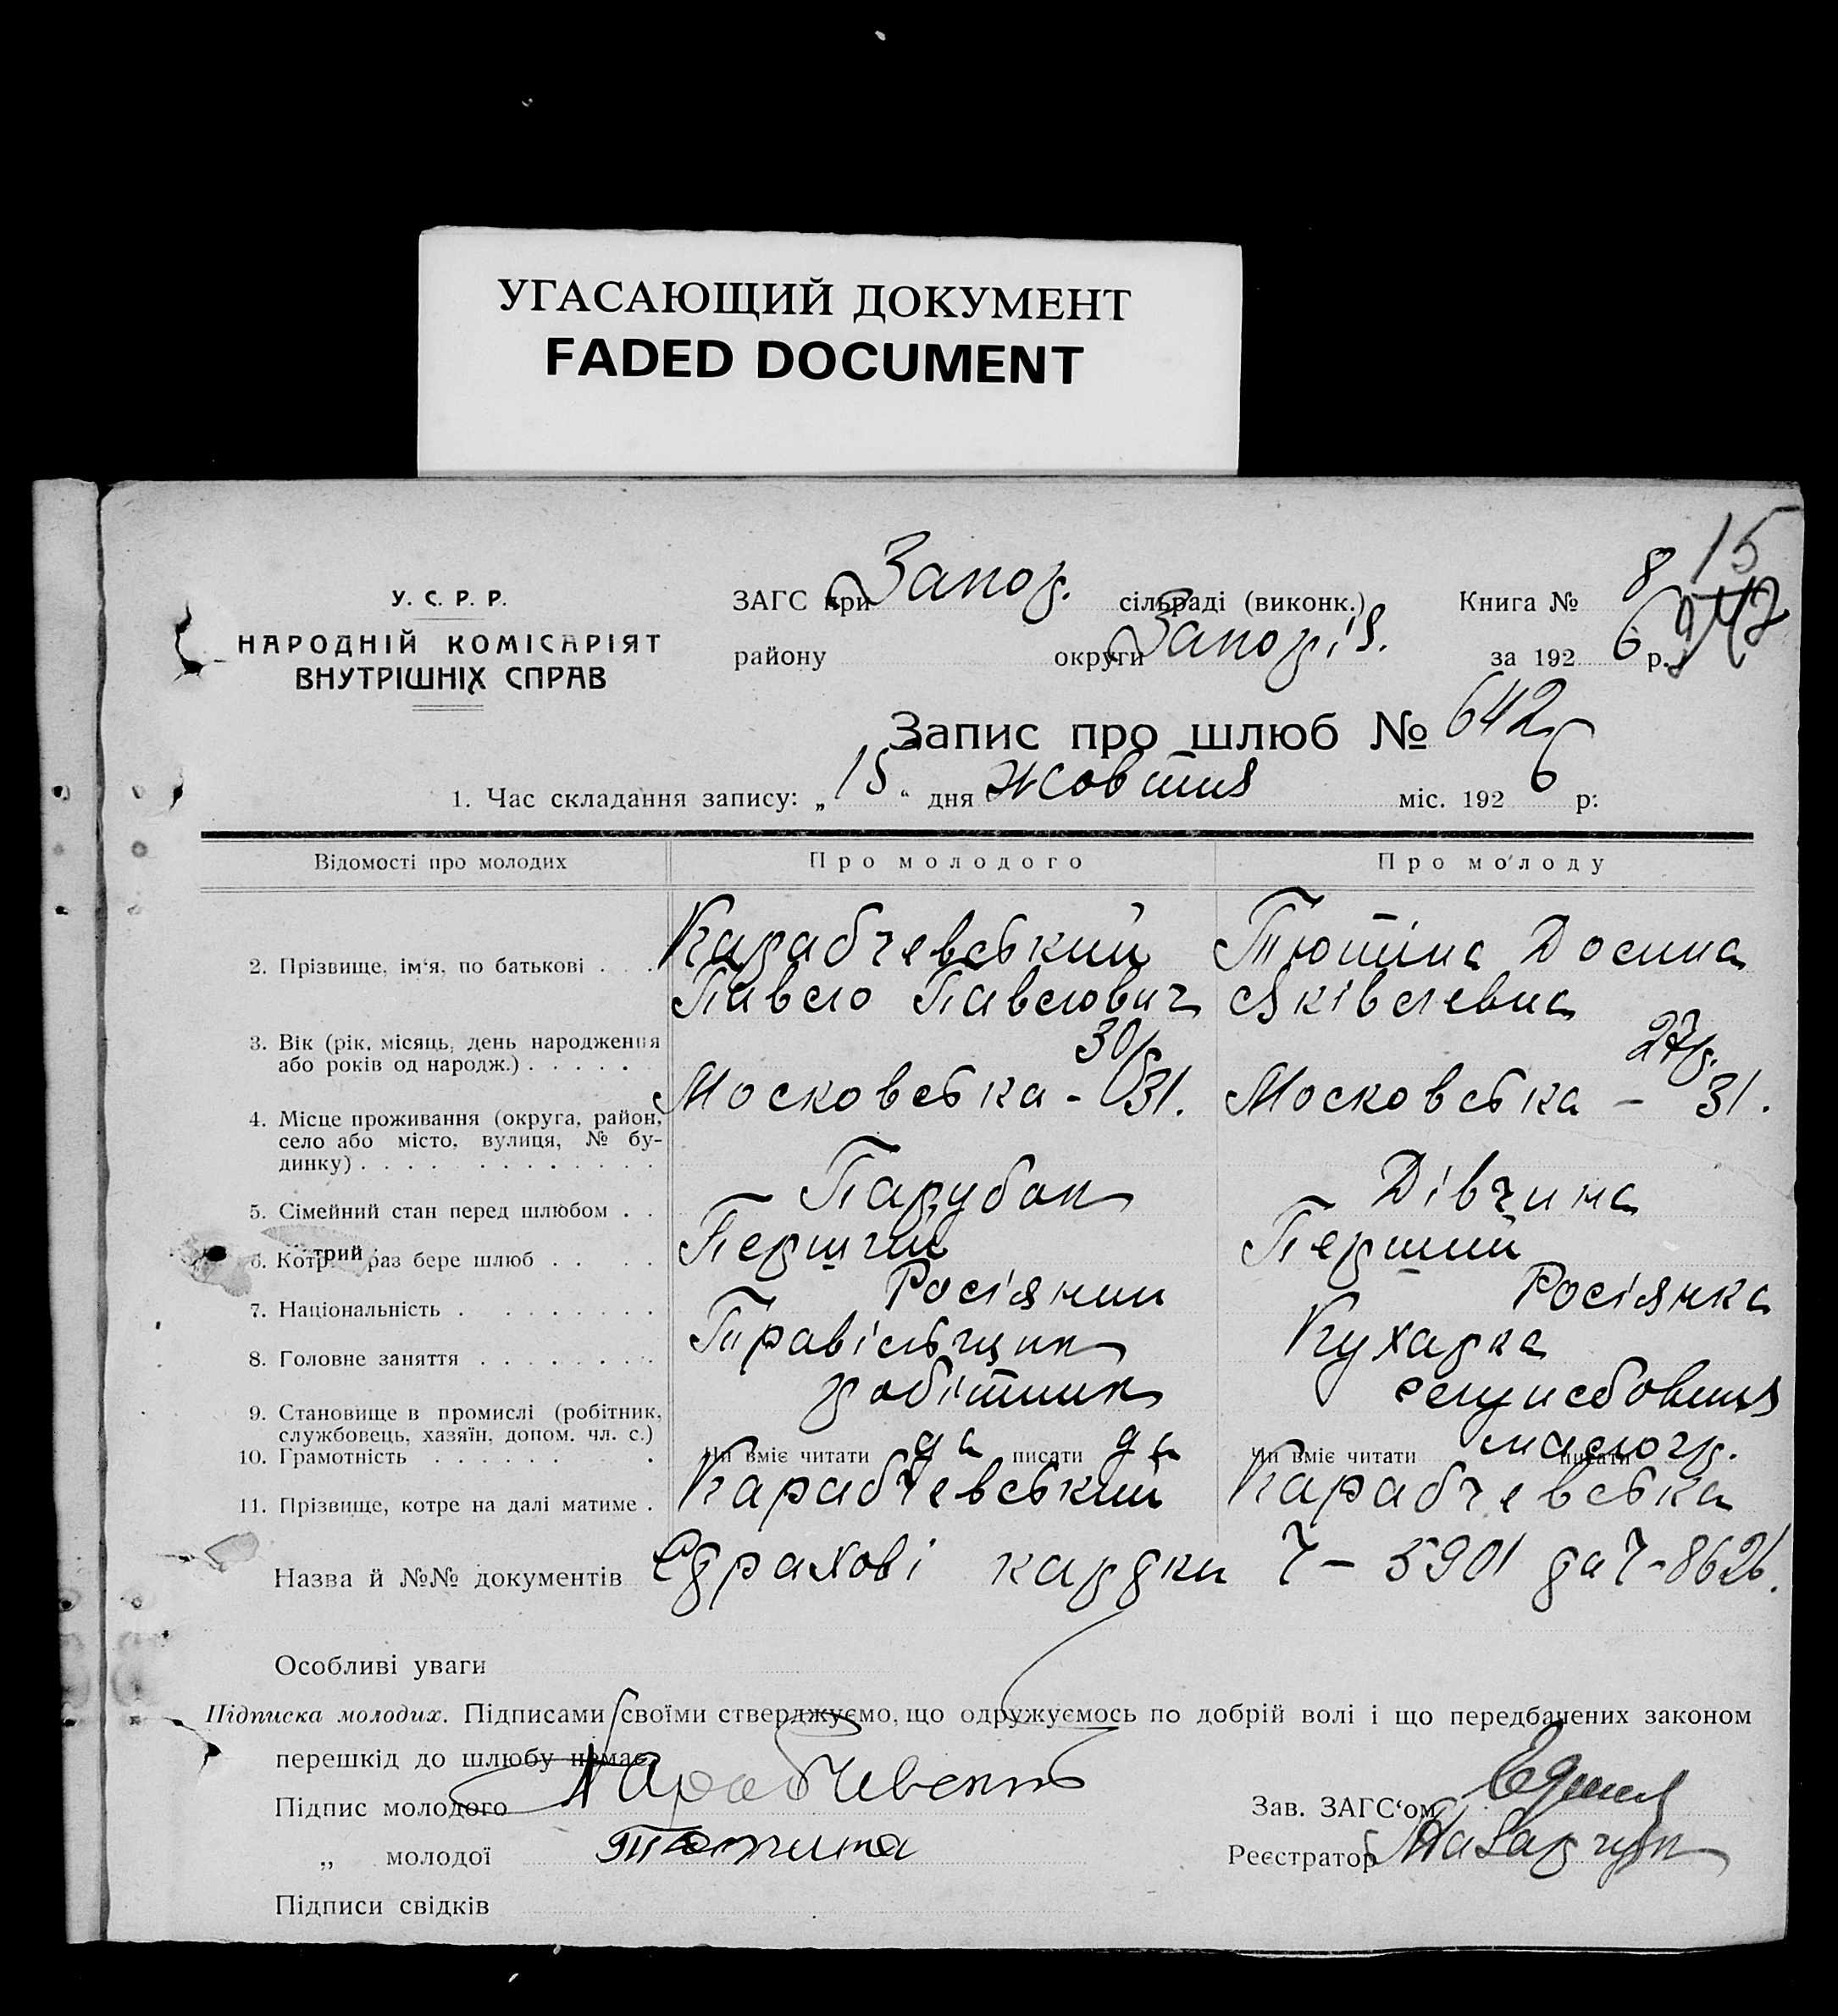 УГАСАЮЩИЙ ДОКУМЕНТ
FADED DOCUMENT
15
У. С. Р. Р.
НАРОДНІЙ КОМІСАРІЯТ
ВНУТРІШНІХ СПРАВ
ЗАГС при Запор. сільраді (виконк.) Книга № 8
району округи Запоріз. за 1926 р.
Запис про шлюб № 642
1. Час складання запису: „15“ дня жовтня міс. 1926 р:
Відомості про молодих Про молодого Про молоду
2. Прізвище, ім‘я, по батькові . . . Карабчевський Тютіна Досина
Павло Павлович Яківлевна
3. Вік (рік, місяць, день народження 30 р. 27 р.
або років од народж.) . . . . .
4. Місце проживання (округа, район, Московська - 31. Московська - 31.
село або місто, вулиця, № бу-
динку) . . . . . . . . . . . . .
5. Сімейний стан перед шлюбом . . Парубок Дівчина
6. Котрий раз бере шлюб . . . . Перший Перший
7. Національність . . . . . . . . Росіянин Росіянка
8. Головне заняття . . . . . . . . Правільщик Кухарка
9. Становище в промислі (робітник, робітник
службовець, хазяїн, допом. чл. с.)
10. Грамотність . . . . . . . Чи вміє читати да писати да Чи вміє читати малогр. писати
11. Прізвище, котре на далі матиме . Карабчевський Карабчевська
Назва й №№ документів Страхові картки 7 - 5901 та 7 - 8626.
Особливі уваги
Підписка молодих. Підписами своїми стверджуємо, що одружуємось по добрій волі і що передбачених законом
перешкід до шлюбу немає.
Підпис молодого Зав. ЗАГС‘ом
„ молодої Тютина Реєстратор Назарчук
Підписи свідків